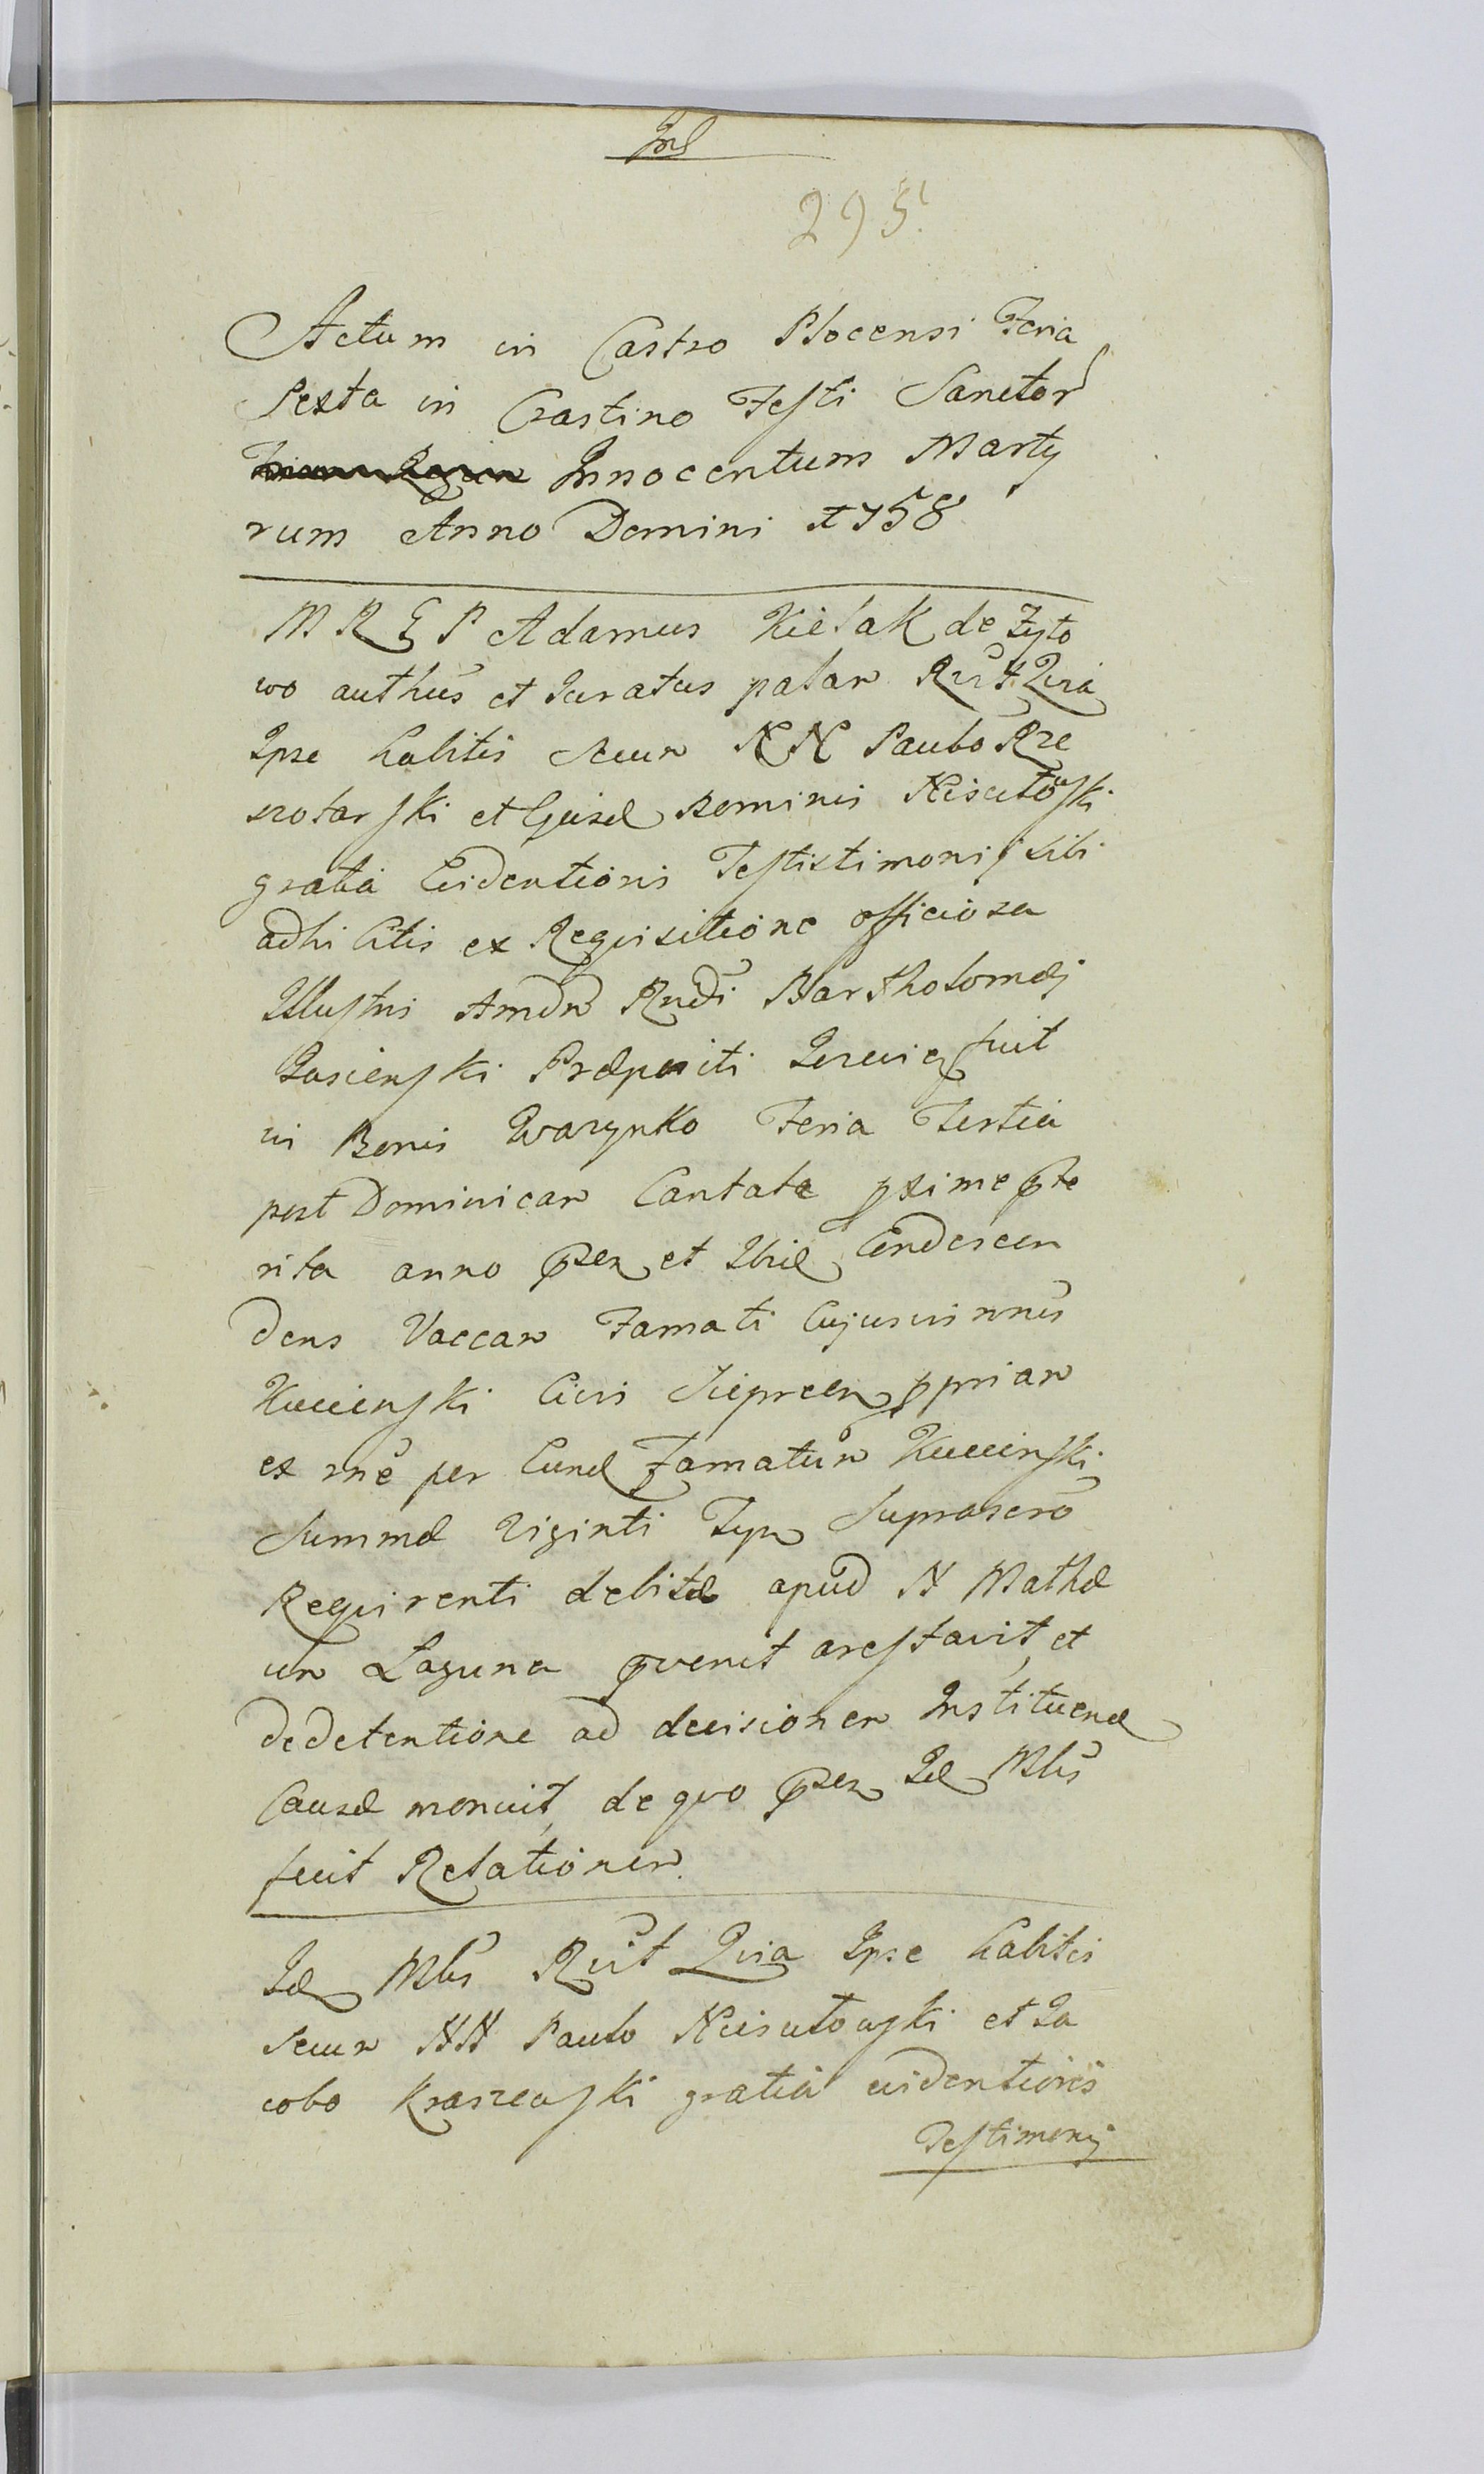 295
Actum in Castro Plocensi Feria
Sexta in Crastino Festi Sanctor
Innocentum Marty
rum Anno Domini 1758
M R G P Adamus Kielak de Zyto
wo authus et Juratus palam Rcit Quia
Ipse habitis secum NN Paulo Rze
szotarski et Ejusd Nominis Niscutowski
gratia Evidentioris Testistimonij sibi
adhibitis ex Requisitione officiosa
Illustris Amdm Rndi Bartholomæj
Jasienski Præpositi fuit
in Bonis Feria Tertia
post Dominicam Cantate pxime pte
rita anno psen et Ibid Condescen
dens Vaccam Famati Cujusvis nnis
Kucienski Civis ppriam
ex rne per Eund Famatum Kucienski
Summæ Viginti Typ Suprascro
Requirenti debitæ apud N Mathæ
um Laguna pvenit arestavit, et
de detentione ad decisionem Instituend
Causæ monuit, de quo psen Id Mlis
fecit Relationem.
Id Mlis Rcit Quia Ipse habitis
secum NN Paulo Niscutowski et Ja
cobo Kraszewski gratia evidentioris
Testimonij